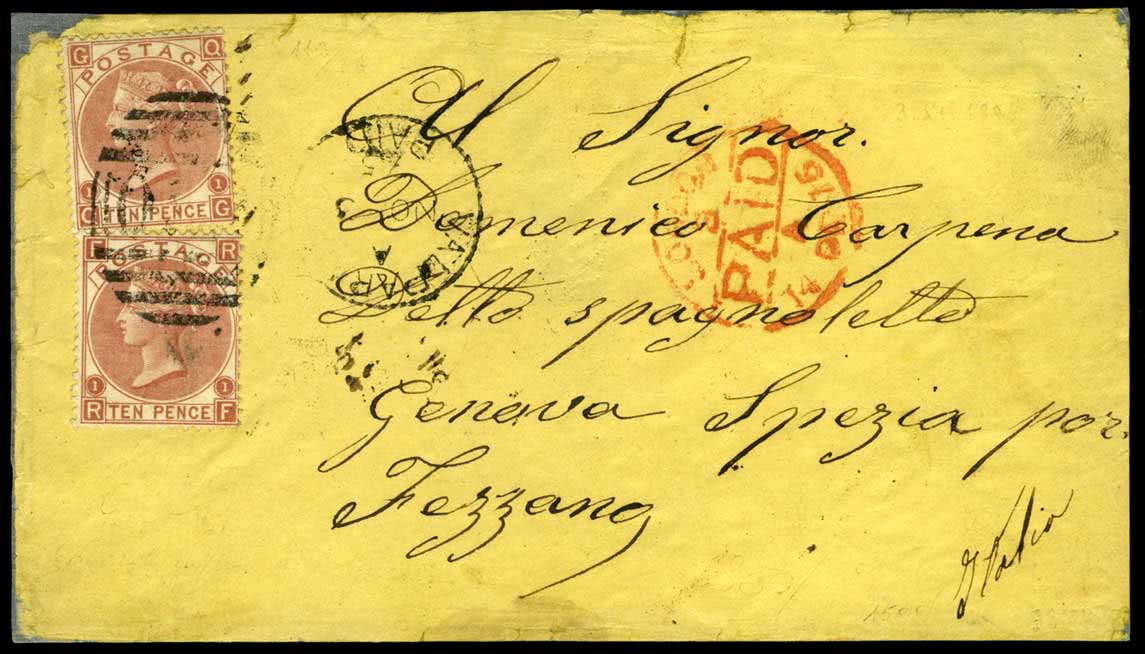 G Q
POSTAGE
1 1
G TEN PENCE G
F R
POSTAGE
1 1
R TEN PENCE F
Al Signor.
Domenico Carpena
Detto spagnoletto
Genova Spezia por.
Fezzano
Italia
PAID
LONDON
PAID